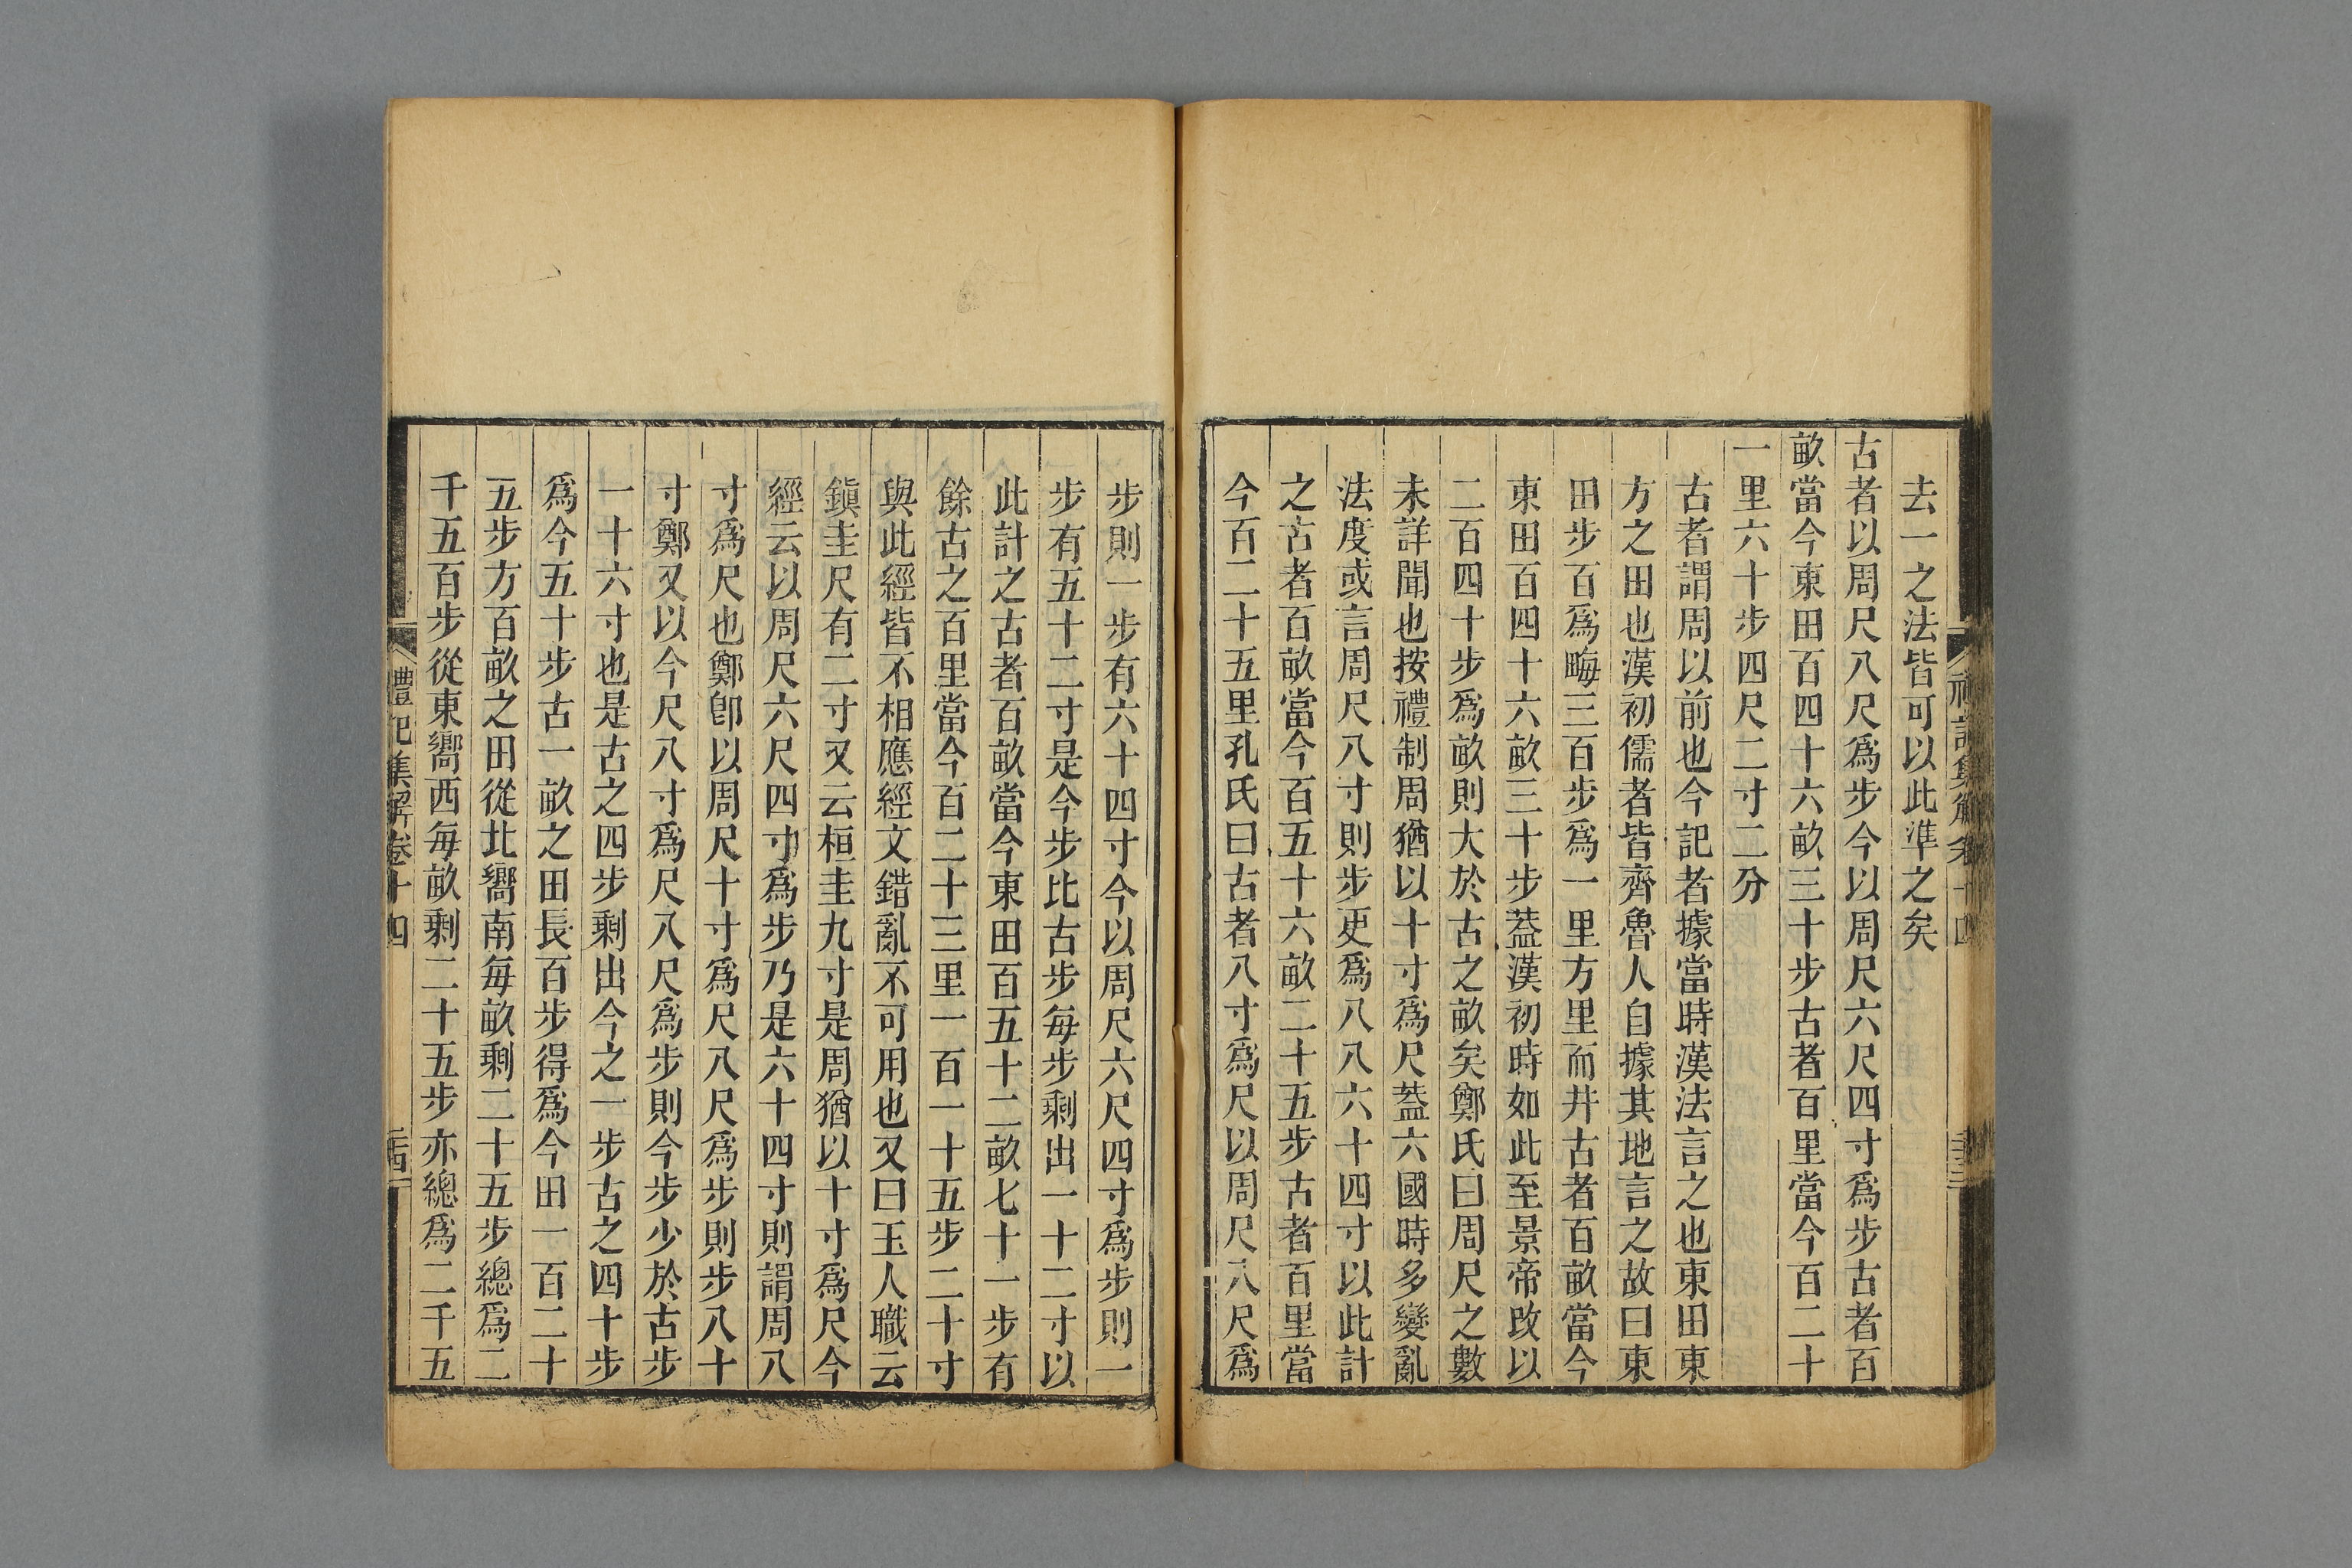 去一之法皆可以此準之矣
古者以周尺八尺爲步今以周尺六尺四寸爲步古者百
畝當今東田百四十六畝三十步古者百里當今百二十
一里六十步四尺二寸二分
古者謂周以前也今記者據當時漢法言之也東田東
方之田也漢初儒者皆齊魯人自據其地言之故曰東
田步百爲畮三百步爲一里方里而井古者百畝當今
東田百四十六畝三十步蓋漢初時如此至景帝改以
二百四十步爲畝則大於古之畝矣鄭氏曰周尺之數
未詳聞也按禮制周猶以十寸爲尺蓋六國時多變亂
法度或言周尺八寸則步更爲八八六十四寸以此計
之古者百畝當今百五十六畝二十五步古者百里當
今百二十五里孔氏曰古者八寸爲尺以周尺八尺爲
步則一步有六十四寸今以周尺六尺四寸爲步則一
步有五十二寸是今步比古步每步剩出一十二寸以
此計之古者百畝當今東田百五十二畝七十一步有
餘古之百里當今百二十三里一百一十五步二十寸
與此經皆不相應經文錯亂不可用也又曰玉人職云
鎭圭尺有二寸又云桓圭九寸是周猶以十寸爲尺今
經云以周尺六尺四寸爲步乃是六十四寸則謂周八
寸爲尺也鄭卽以周尺十寸爲尺八尺爲步則步八十
寸鄭又以今尺八寸爲尺八尺爲步則今步少於古步
一十六寸也是古之四步剩出今之一步古之四十步
爲今五十步古一畝之田長百步得爲今田一百二十
五步方百畝之田從北嚮南每畝剩二十五步總爲二
千五百步從東嚮西每畝剩二十五步亦總爲二千五
禮記集解卷十四